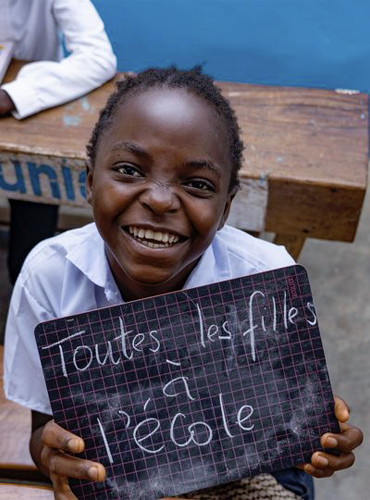 uni
Toutes les filles
à
l'école